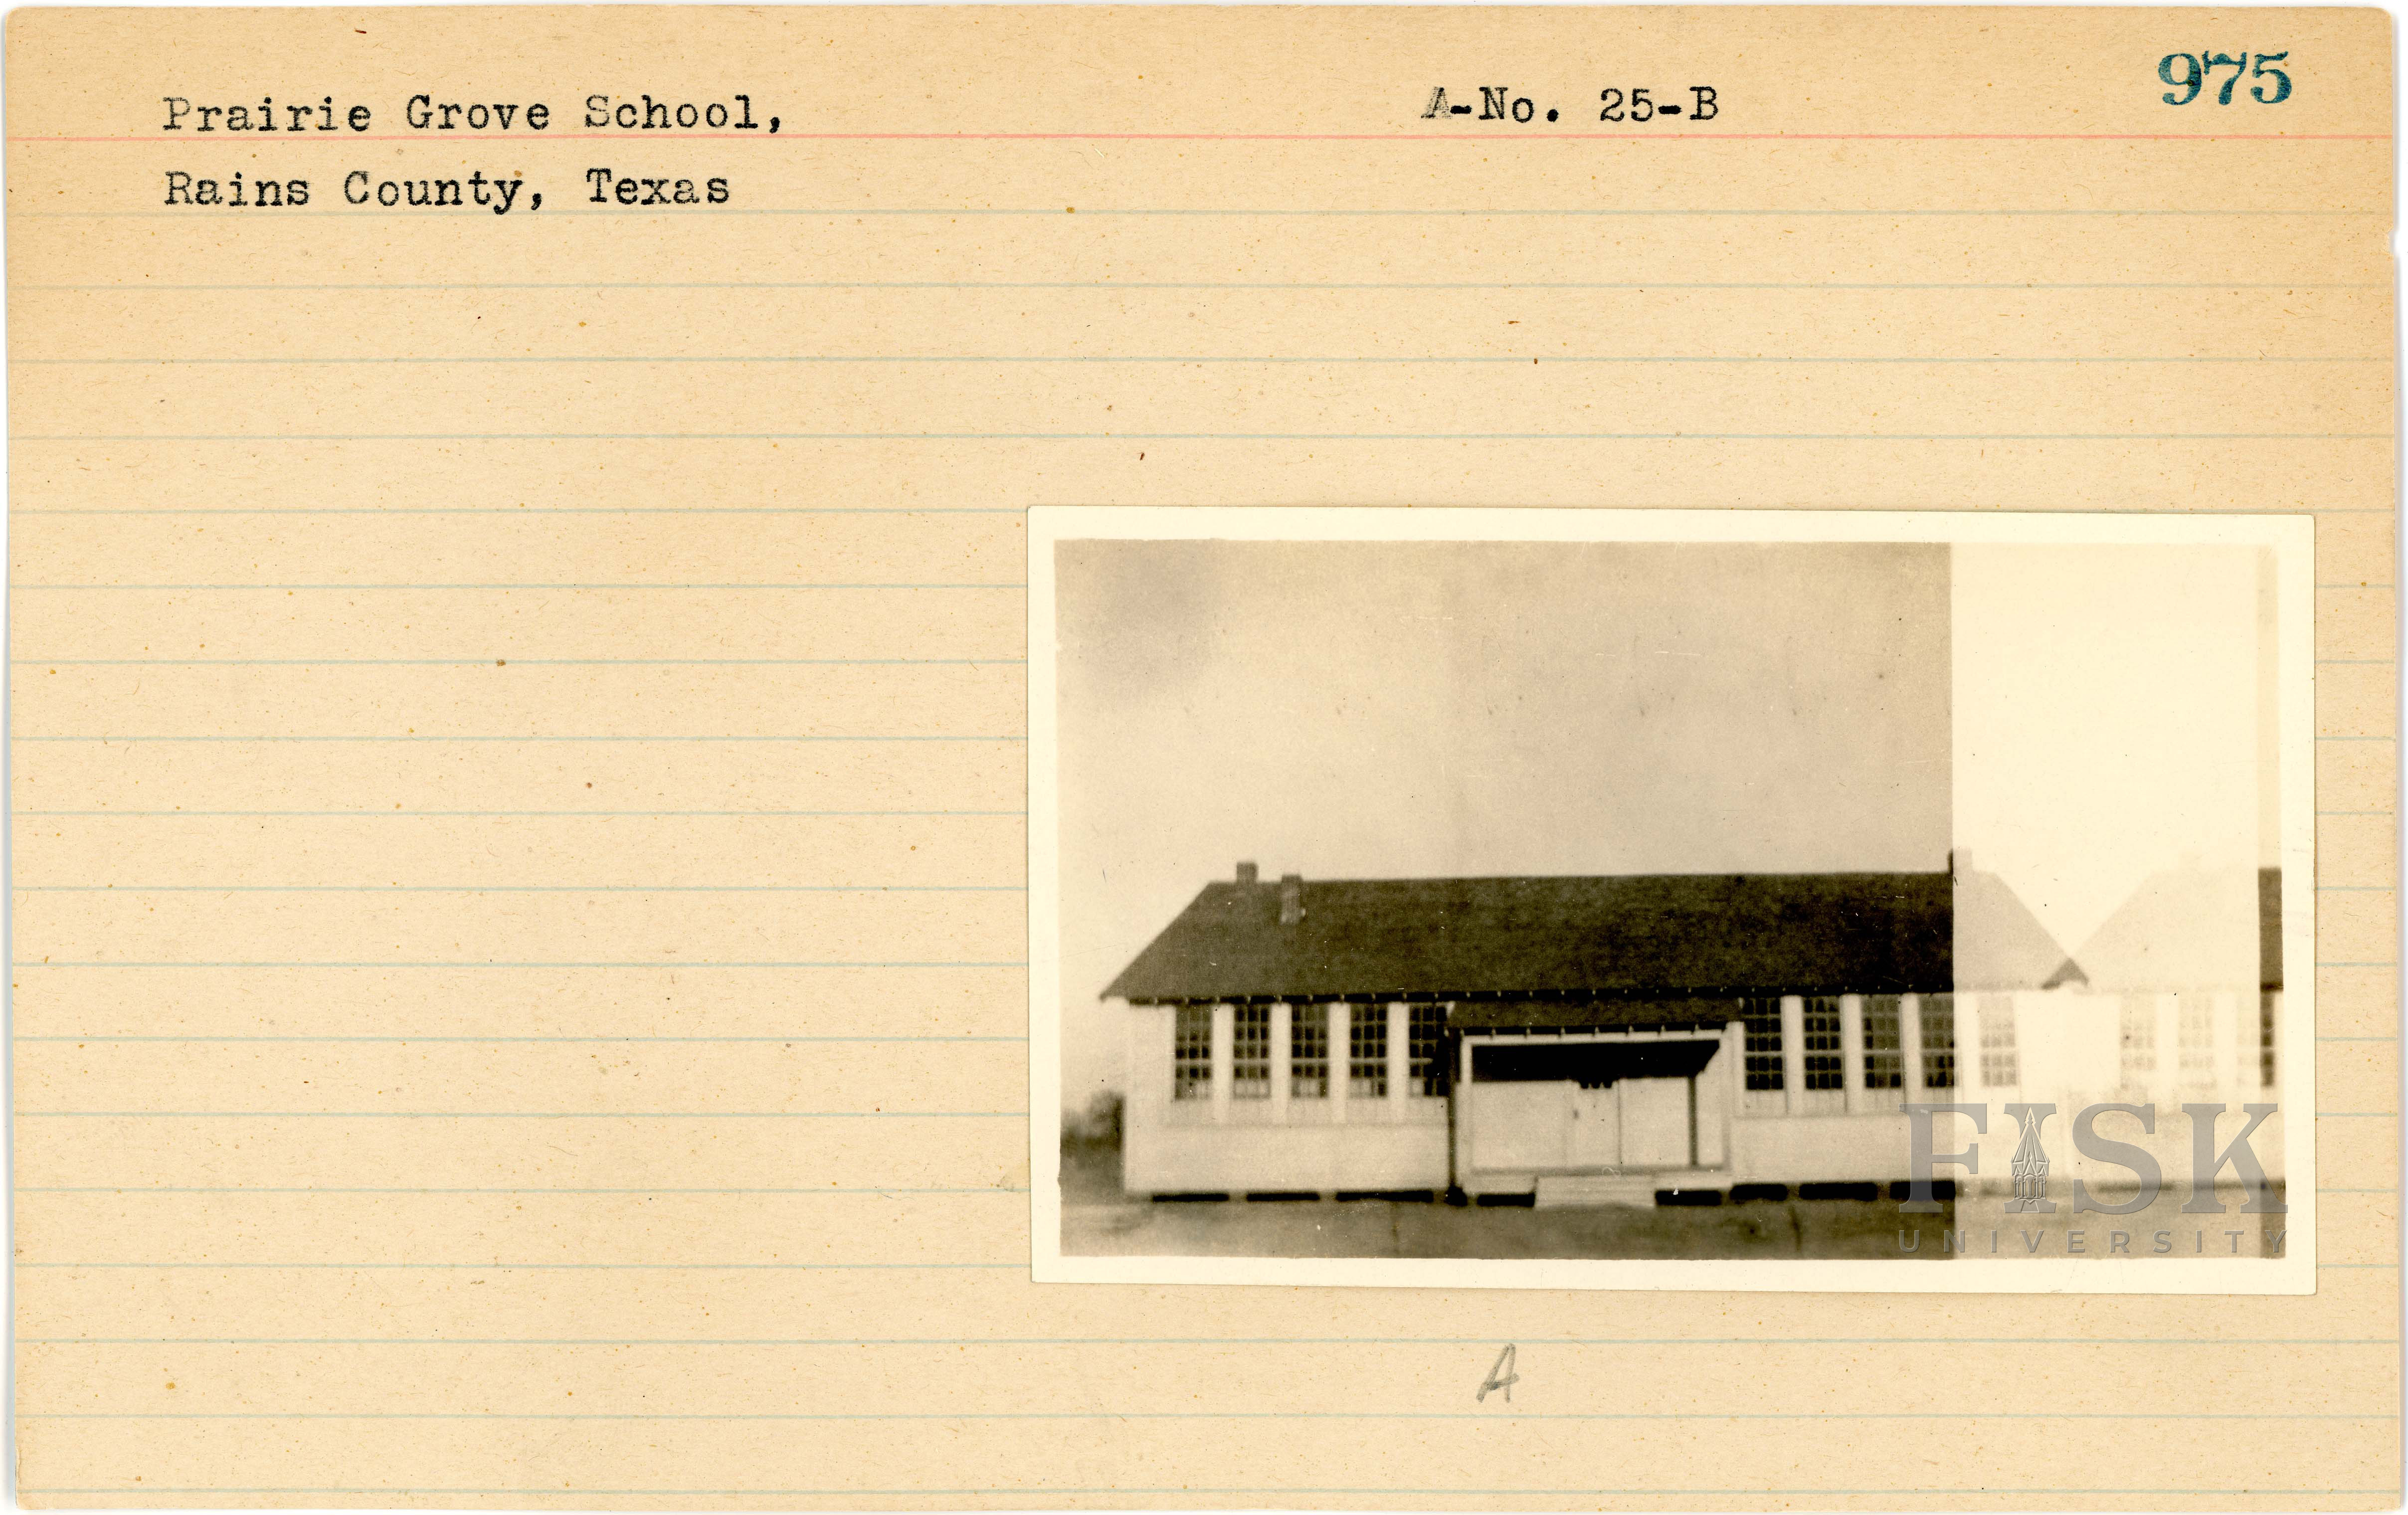 975
Prairie Grove School, A-No. 25-B
Rains County, Texas
FISK
UNIVERSITY
A